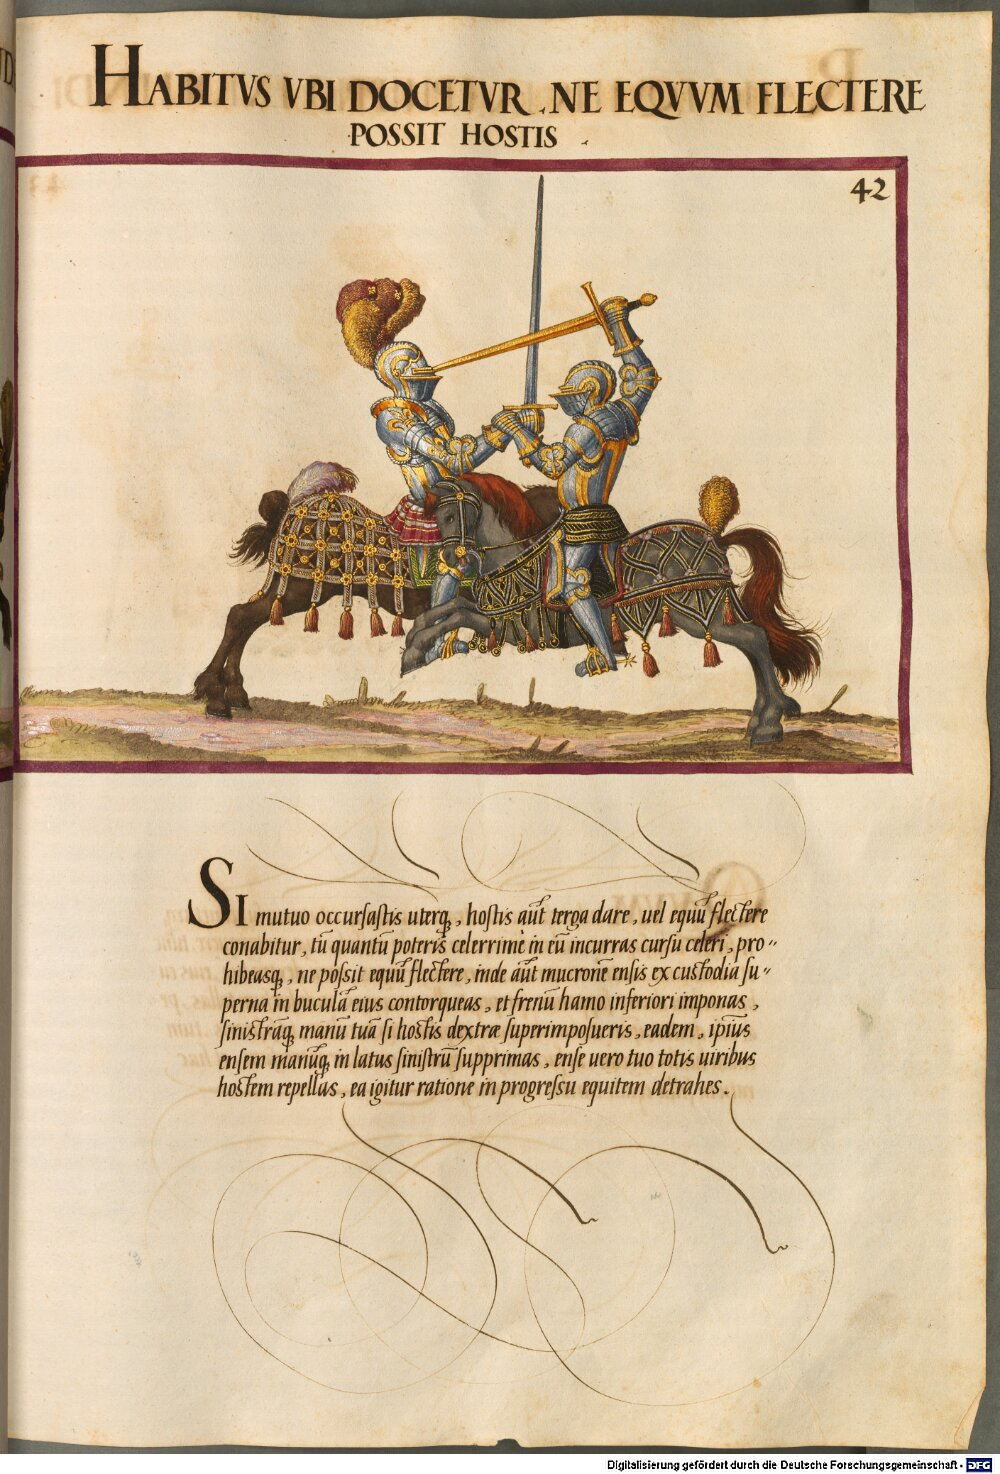 HABITVS VBI DOCETVR NE EQVVM FLECTERE
POSSIT HOSTIS
42
SI mutuo occursastis uterq̨, hostis aūt terga dare, uel equū flectere
conabitur, tū quantū poteris celerrime in eū incurras cursu celeri, pro-
hibeasq̨, ne possit equū flectere, inde aūt mucronē ensis ex custodia su-
perna in buculā eius contorqueas, et frenū hamo inferiori imponas,
sinistrāq̨ manū tuā si hostis dextræ superimposueris, eadem, ipīus
ensem manūq̨ in latus sinistrū supprimas, ense uero tuo totis uiribus
hostem repellas, ea igitur ratione in progressu equitem detrahes.
Digitalisierung gefördert durch die Deutsche Forschungsgemeinschaft - DFG